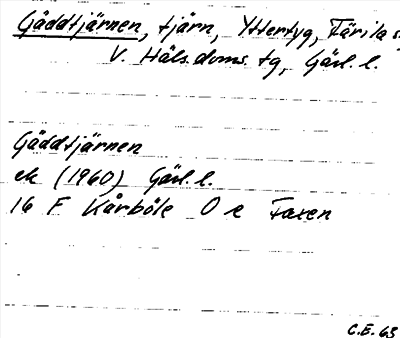 Gäddtjärnen, tjärn, Yttertyg, Färila s,
V. Häls. doms. tg, Gävl. l.
Gäddtjärnen
ek (1960) Gävl. l.
16 F Kårböle O e Faxen
C.E. 63